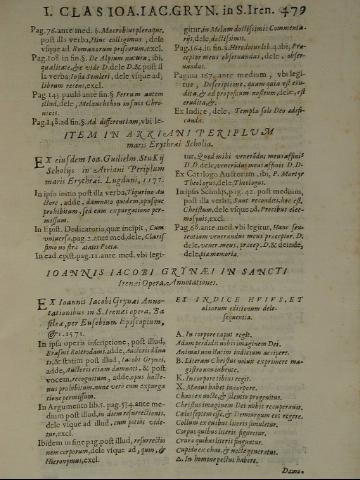 I. CLAS IOA. IAC. GRYN. in S. Iren. 479
Pag.76. ante med. §. Macrobius plerasque,
post illa verba, Hinc colligimus, dele
vsque ad Romanorum pressorum, excl.
Pag.108. in fin §. De Alpium natura, ibi,
qualitate, & vide D. dele D. & post il
la verba, Iosia Semleri, dele vsque ad
librum recens, excl.
Pag.145 paulò ante fin §. Ferrum autem
illud, dele, Melanchthon in suis Chro
nicis.
Pag.148. ad fin §. Ad differentiam, vbi le-
gitur, in Melam doctissimis Commenta-
riis, dele, doctissimis.
Pag.164. in fin §. Herodotus lib. 4. ibi, Prae-
ceptor meus obseruandus, dele, obser-
uandus.
Pagina 167. ante medium, vbi legi-
tur, Descriptione, quam quia est exi-
dele, & ad propositum nostrum, dele, est
exigua.
Ex Indice, dele, Templa soli Deo aedifi-
canda.
ITEM IN ARRIANI PERIPLUM
maris Erythraei Scholia.
EX eiusdem Ioa. Guilielm. Stuckij
Scholijs in Arriani Periplum
maris Erythraei. Lugduni, 1577.
In ipso initio post illa verba, Tigurino Au-
ctore, adde, damnato quidem, opus que
prohibitum, sed cum expurgatione per-
missum.
In Epist. Dedicatoria, quae incipit, Cum
vniuersa, pag. 2. ante med, dele, Claris-
simo nostrae aetatis Poeta.
In ead. epist. pag. 11. ante med. vbi legi-
tur, Quod mihi venerandus meus affinis
D.D. dele, venerandus meus affinis D.D.
Ex Catalogo Auctorum, ibi, P. Martyr
Theologus, dele, Theologus.
In ipsis Scholijs, pag. 42. post medium,
post illa verba, Sunt recondita, hoc est,
Christum, dele vsque ad, Pretiosus elec-
mosynis, excl.
Pag. 68. ante med. vbi legitur, Hanc sen-
tentiam venerandus meus praeceptor D.
dele, vener. meus, praecep. D. & deinde,
dele, pia memoria.
IOANNIS IACOBI GRYNAEI IN SANCTI
Irenaei Opera, Annotationes.
EX Ioannis Iacobi Grynaei Anno-
tationibus in S. Irenaei opera, Ba
silea, per Eusebium Episcopium,
& c. 1571.
In ipsa operis inscriptione, post illud,
Erasmi Roterodami, adde, Auctoris dam-
nati & statim post illud, Iacobi Grynaei,
adde, Auctoris etiam damnati, & post
vocem, recognitum, adde, opus hacte-
nus prohibitum, nunc vero cum expurga
tione permissum.
In Argumento lib. 1. pag. 574. ante me-
dium post illud, in diem resurrectionis,
dele vsque ad illud, cum potius vide-
tur, excl.
Ibidem in fine pag. post illud, resurrectio
nem corporum, dele vsque ad, quin, &
Hieronymus, excl.
EX INDICE HVIVS, ET
aliorum editiorum dele-
sequentia.
A. In corpore caput regit.
Adam perdidit nobis imaginem Dei.
B. Literam Christus voluit exprimere ma-
gistrorum imbuere.
K. In corpore tibias regit.
X. Manus habet in corpore.
Chaos ex nocte & silentio progenitus.
Christus imaginem Dei nobis recuperauit.
Collum ex quibus literis simuletur.
Corpus quibus literis figuretur.
Crura quibus literis fingatur.
Cupido ex chao, & nocte generatus.
Δ. In homine pectus habere.
Dama-